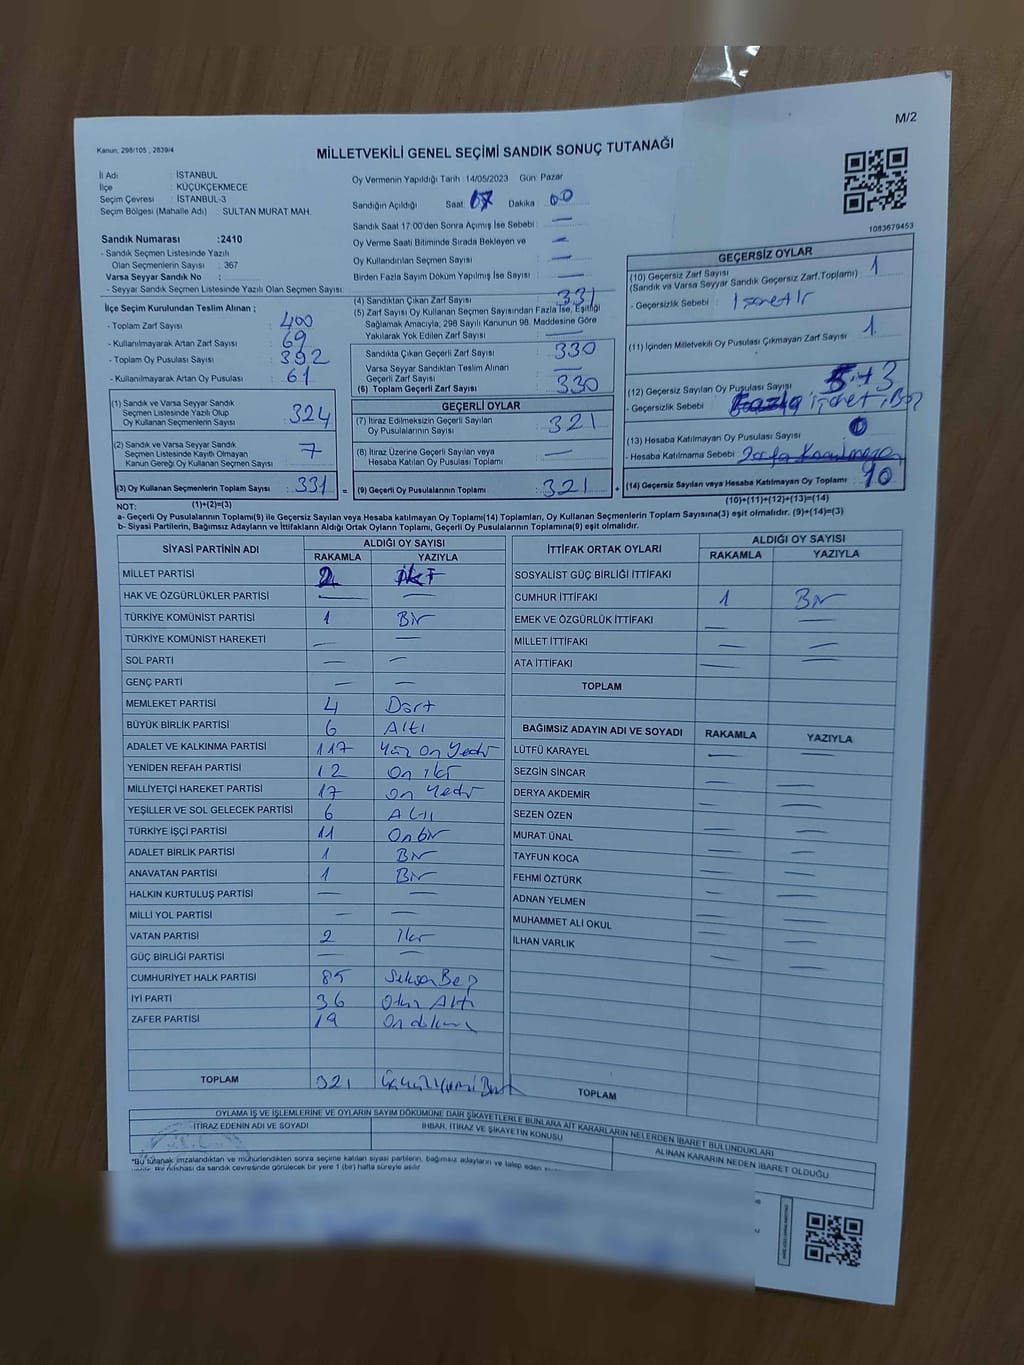 M/2
Kanun: 298/105 , 2839/4
MİLLETVEKİLİ GENEL SEÇİMİ SANDIK SONUÇ TUTANAĞI
İl Adı : İSTANBUL
İlçe : KÜÇÜKÇEKMECE
Seçim Çevresi : İSTANBUL-3
Seçim Bölgesi (Mahalle Adı) : SULTAN MURAT MAH.
Sandık Numarası :2410
- Sandık Seçmen Listesinde Yazılı
Olan Seçmenlerin Sayısı : 367
Varsa Seyyar Sandık No :
- Seyyar Sandık Seçmen Listesinde Yazılı Olan Seçmen Sayısı:
İlçe Seçim Kurulundan Teslim Alınan ;
- Toplam Zarf Sayısı : 400
- Kullanılmayarak Artan Zarf Sayısı : 69
- Toplam Oy Pusulası Sayısı : 392
- Kullanılmayarak Artan Oy Pusulası : 61
(1) Sandık ve Varsa Seyyar Sandık
Seçmen Listesinde Yazılı Olup
Oy Kullanan Seçmenlerin Sayısı : 324
(2) Sandık ve Varsa Seyyar Sandık
Seçmen Listesinde Kayıtlı Olmayan
Kanun Gereği Oy Kullanan Seçmen Sayısı : 7
(3) Oy Kullanan Seçmenlerin Toplam Sayısı : 331
(1)+(2)=(3)
Oy Vermenin Yapıldığı Tarih :14/05/2023 Gün: Pazar
Sandığın Açıldığı Saat: Dakika : 00
Sandık Saat 17:00'den Sonra Açımış İse Sebebi : —
Oy Verme Saati Bitiminde Sırada Bekleyen ve
Oy Kullandırılan Seçmen Sayısı : —
Birden Fazla Sayım Döküm Yapılmış İse Sayısı : —
(4) Sandıktan Çıkan Zarf Sayısı : 331
(5) Zarf Sayısı Oy Kullanan Seçmen Sayısından Fazla İse, Eşitliği
Sağlamak Amacıyla, 298 Sayılı Kanunun 98. Maddesine Göre
Yakılarak Yok Edilen Zarf Sayısı : —
Sandıkta Çıkan Geçerli Zarf Sayısı : 330
Varsa Seyyar Sandıktan Teslim Alınan
Geçerli Zarf Sayısı :
(6) Toplam Geçerli Zarf Sayısı : 330
GEÇERLİ OYLAR
(7) İtiraz Edilmeksizin Geçerli Sayılan
Oy Pusulalarının Sayısı : 321
(8) İtiraz Üzerine Geçerli Sayılan veya
Hesaba Katılan Oy Pusulası Toplamı : —
= (9) Geçerli Oy Pusulalarının Toplamı : 321
1083679453
GEÇERSİZ OYLAR
(10) Geçersiz Zarf Sayısı
(Sandık ve Varsa Seyyar Sandık Geçersiz Zarf Toplamı) : 1
- Geçersizlik Sebebi :
(11) İçinden Milletvekili Oy Pusulası Çıkmayan Zarf Sayısı : 1
(12) Geçersiz Sayılan Oy Pusulası Sayısı : 5+3
- Geçersizlik Sebebi :
(13) Hesaba Katılmayan Oy Pusulası Sayısı : 0
- Hesaba Katılmama Sebebi :
+ (14) Geçersiz Sayılan veya Hesaba Katılmayan Oy Toplamı : 10
(10)+(11)+(12)+(13)=(14)
NOT:
a- Geçerli Oy Pusulalarının Toplamı(9) ile Geçersiz Sayılan veya Hesaba katılmayan Oy Toplamı(14) Toplamları, Oy Kullanan Seçmenlerin Toplam Sayısına(3) eşit olmalıdır. (9)+(14)=(3)
b- Siyasi Partilerin, Bağımsız Adayların ve İttifakların Aldığı Ortak Oyların Toplamı, Geçerli Oy Pusulalarının Toplamına(9) eşit olmalıdır.
SİYASİ PARTİNİN ADI ALDIĞI OY SAYISI
RAKAMLA YAZIYLA
MİLLET PARTİSİ 2 İKİ
HAK VE ÖZGÜRLÜKLER PARTİSİ — —
TÜRKİYE KOMÜNİST PARTİSİ 1 Bir
TÜRKİYE KOMÜNİST HAREKETİ — —
SOL PARTİ — —
GENÇ PARTİ — —
MEMLEKET PARTİSİ 4 Dört
BÜYÜK BİRLİK PARTİSİ 6 Altı
ADALET VE KALKINMA PARTİSİ 117 Yüz On Yedi
YENİDEN REFAH PARTİSİ 12 On iki
MİLLİYETÇİ HAREKET PARTİSİ 17 On Yedi
YEŞİLLER VE SOL GELECEK PARTİSİ 6 Altı
TÜRKİYE İŞÇİ PARTİSİ 11 Onbir
ADALET BİRLİK PARTİSİ 1 Bir
ANAVATAN PARTİSİ 1 Bir
HALKIN KURTULUŞ PARTİSİ — —
MİLLİ YOL PARTİSİ — —
VATAN PARTİSİ 2 İki
GÜÇ BİRLİĞİ PARTİSİ — —
CUMHURİYET HALK PARTİSİ 85 Seksen Beş
İYİ PARTİ 36 Otuz Altı
ZAFER PARTİSİ 19 On dokuz
TOPLAM 321
İTTİFAK ORTAK OYLARI ALDIĞI OY SAYISI
RAKAMLA YAZIYLA
SOSYALİST GÜÇ BİRLİĞİ İTTİFAKI
CUMHUR İTTİFAKI 1 Bir
EMEK VE ÖZGÜRLÜK İTTİFAKI — —
MİLLET İTTİFAKI — —
ATA İTTİFAKI — —
TOPLAM
BAĞIMSIZ ADAYIN ADI VE SOYADI RAKAMLA YAZIYLA
LÜTFÜ KARAYEL — —
SEZGİN SİNCAR — —
DERYA AKDEMİR — —
SEZEN ÖZEN — —
MURAT ÜNAL — —
TAYFUN KOCA — —
FEHMİ ÖZTÜRK — —
ADNAN YELMEN — —
MUHAMMET ALİ OKUL — —
İLHAN VARLIK — —
TOPLAM
OYLAMA İŞ VE İŞLEMLERİNE VE OYLARIN SAYIM DÖKÜMÜNE DAİR ŞİKAYETLERLE BUNLARA AİT KARARLARIN NELERDEN İBARET BULUNDUKLARI
İTİRAZ EDENİN ADI VE SOYADI İHBAR, İTİRAZ VE ŞİKAYETİN KONUSU ALINAN KARARIN NEDEN İBARET OLDUĞU
*Bu tutanak imzalandıktan ve mühürlendikten sonra seçime katılan siyasi partilerin, bağımsız adayların ve talep eden
bir nüshası da sandık çevresinde görülecek bir yere 1 (bir) hafta süreyle asılır